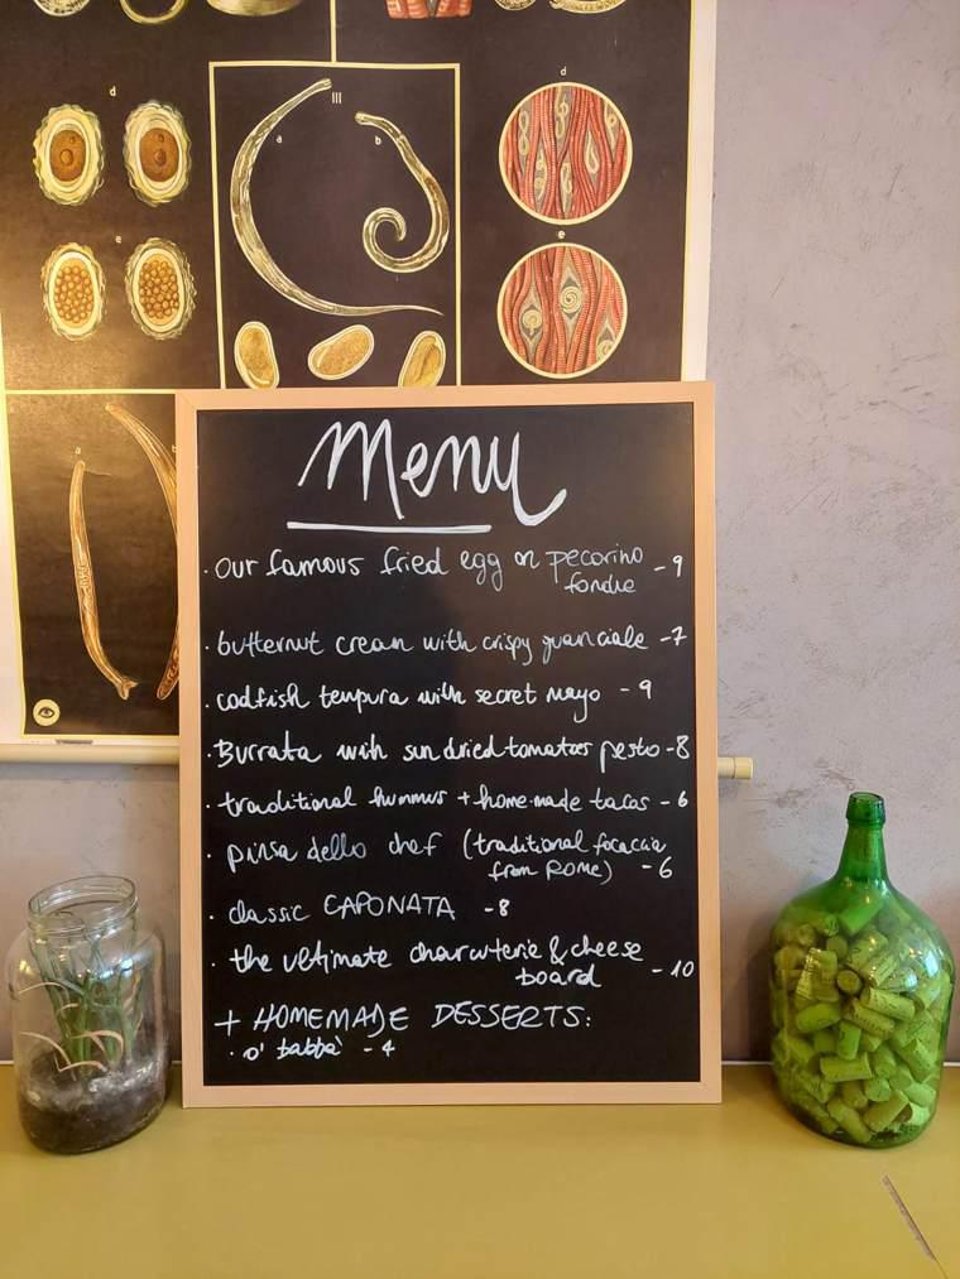 d
III
a
b
d
e
e
a
b
Menu
· our famous fried egg on pecorino - 9
fondue
· butternut cream with crispy guanciale - 7
· codfish tempura with secret mayo - 9
· Burrata with sundried tomatoes pesto - 8
· traditional hummus + home-made tacos - 6
· pinsa dello chef (traditional focaccia
from ROME) - 6
· classic CAPONATA - 8
· the ultimate charcuterie & cheese
board - 10
+ HOMEMADE DESSERTS:
· o' babbà - 4